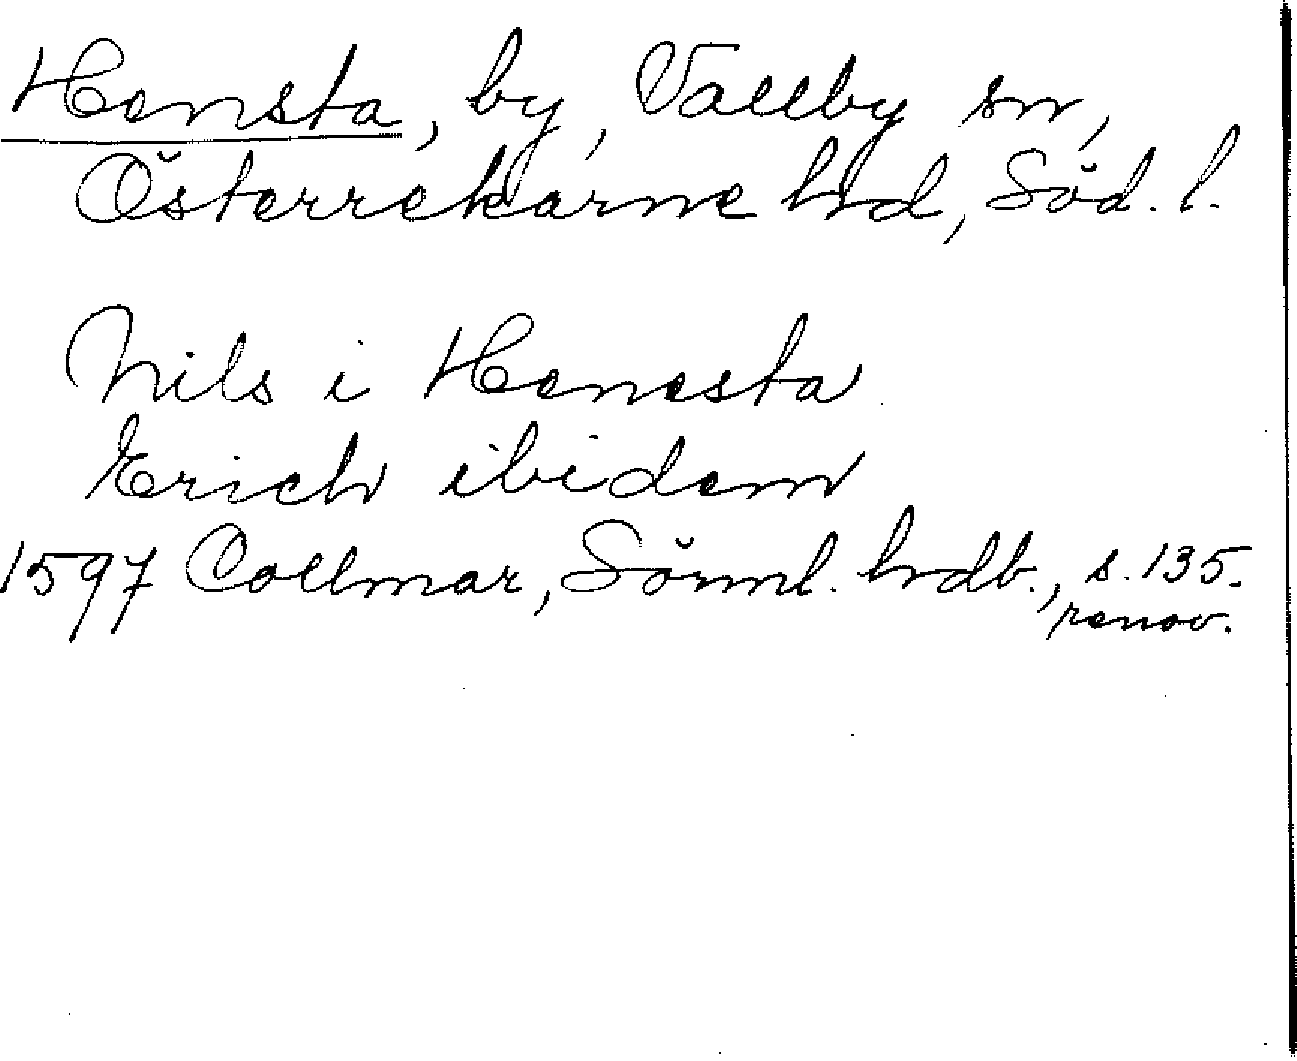 Hensta, by, Vallby sn,
Österrekarne hd, Söd. l.
Nils i Henesta
Erich ibidem
1597 Collmar, Sörml. hdb., s. 135.
renov.